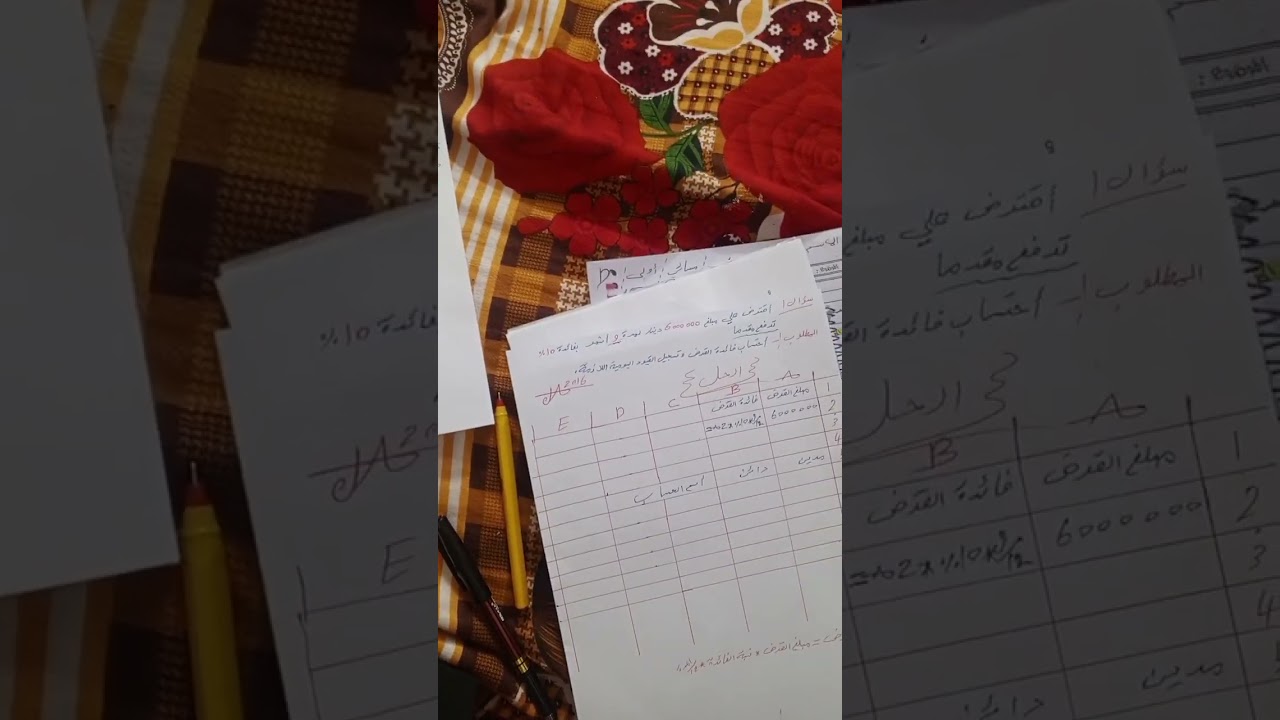 أساسي أولى
سؤال ١ أقترض علي مبلغ 6000000 دينار لمدة 9 أشهر بفائدة 10%
تدفع مقدما
المطلوب :- احتساب فائدة القرض وتسجيل القيود اليومية اللازمة.
{ الحل }
2016
A B C D E
1 مبلغ القرض فائدة القرض
2 6000000 =A2*%10*9/12
3
4
مدين دائن اسم الحساب
= مبلغ القرض * نسبة الفائدة *